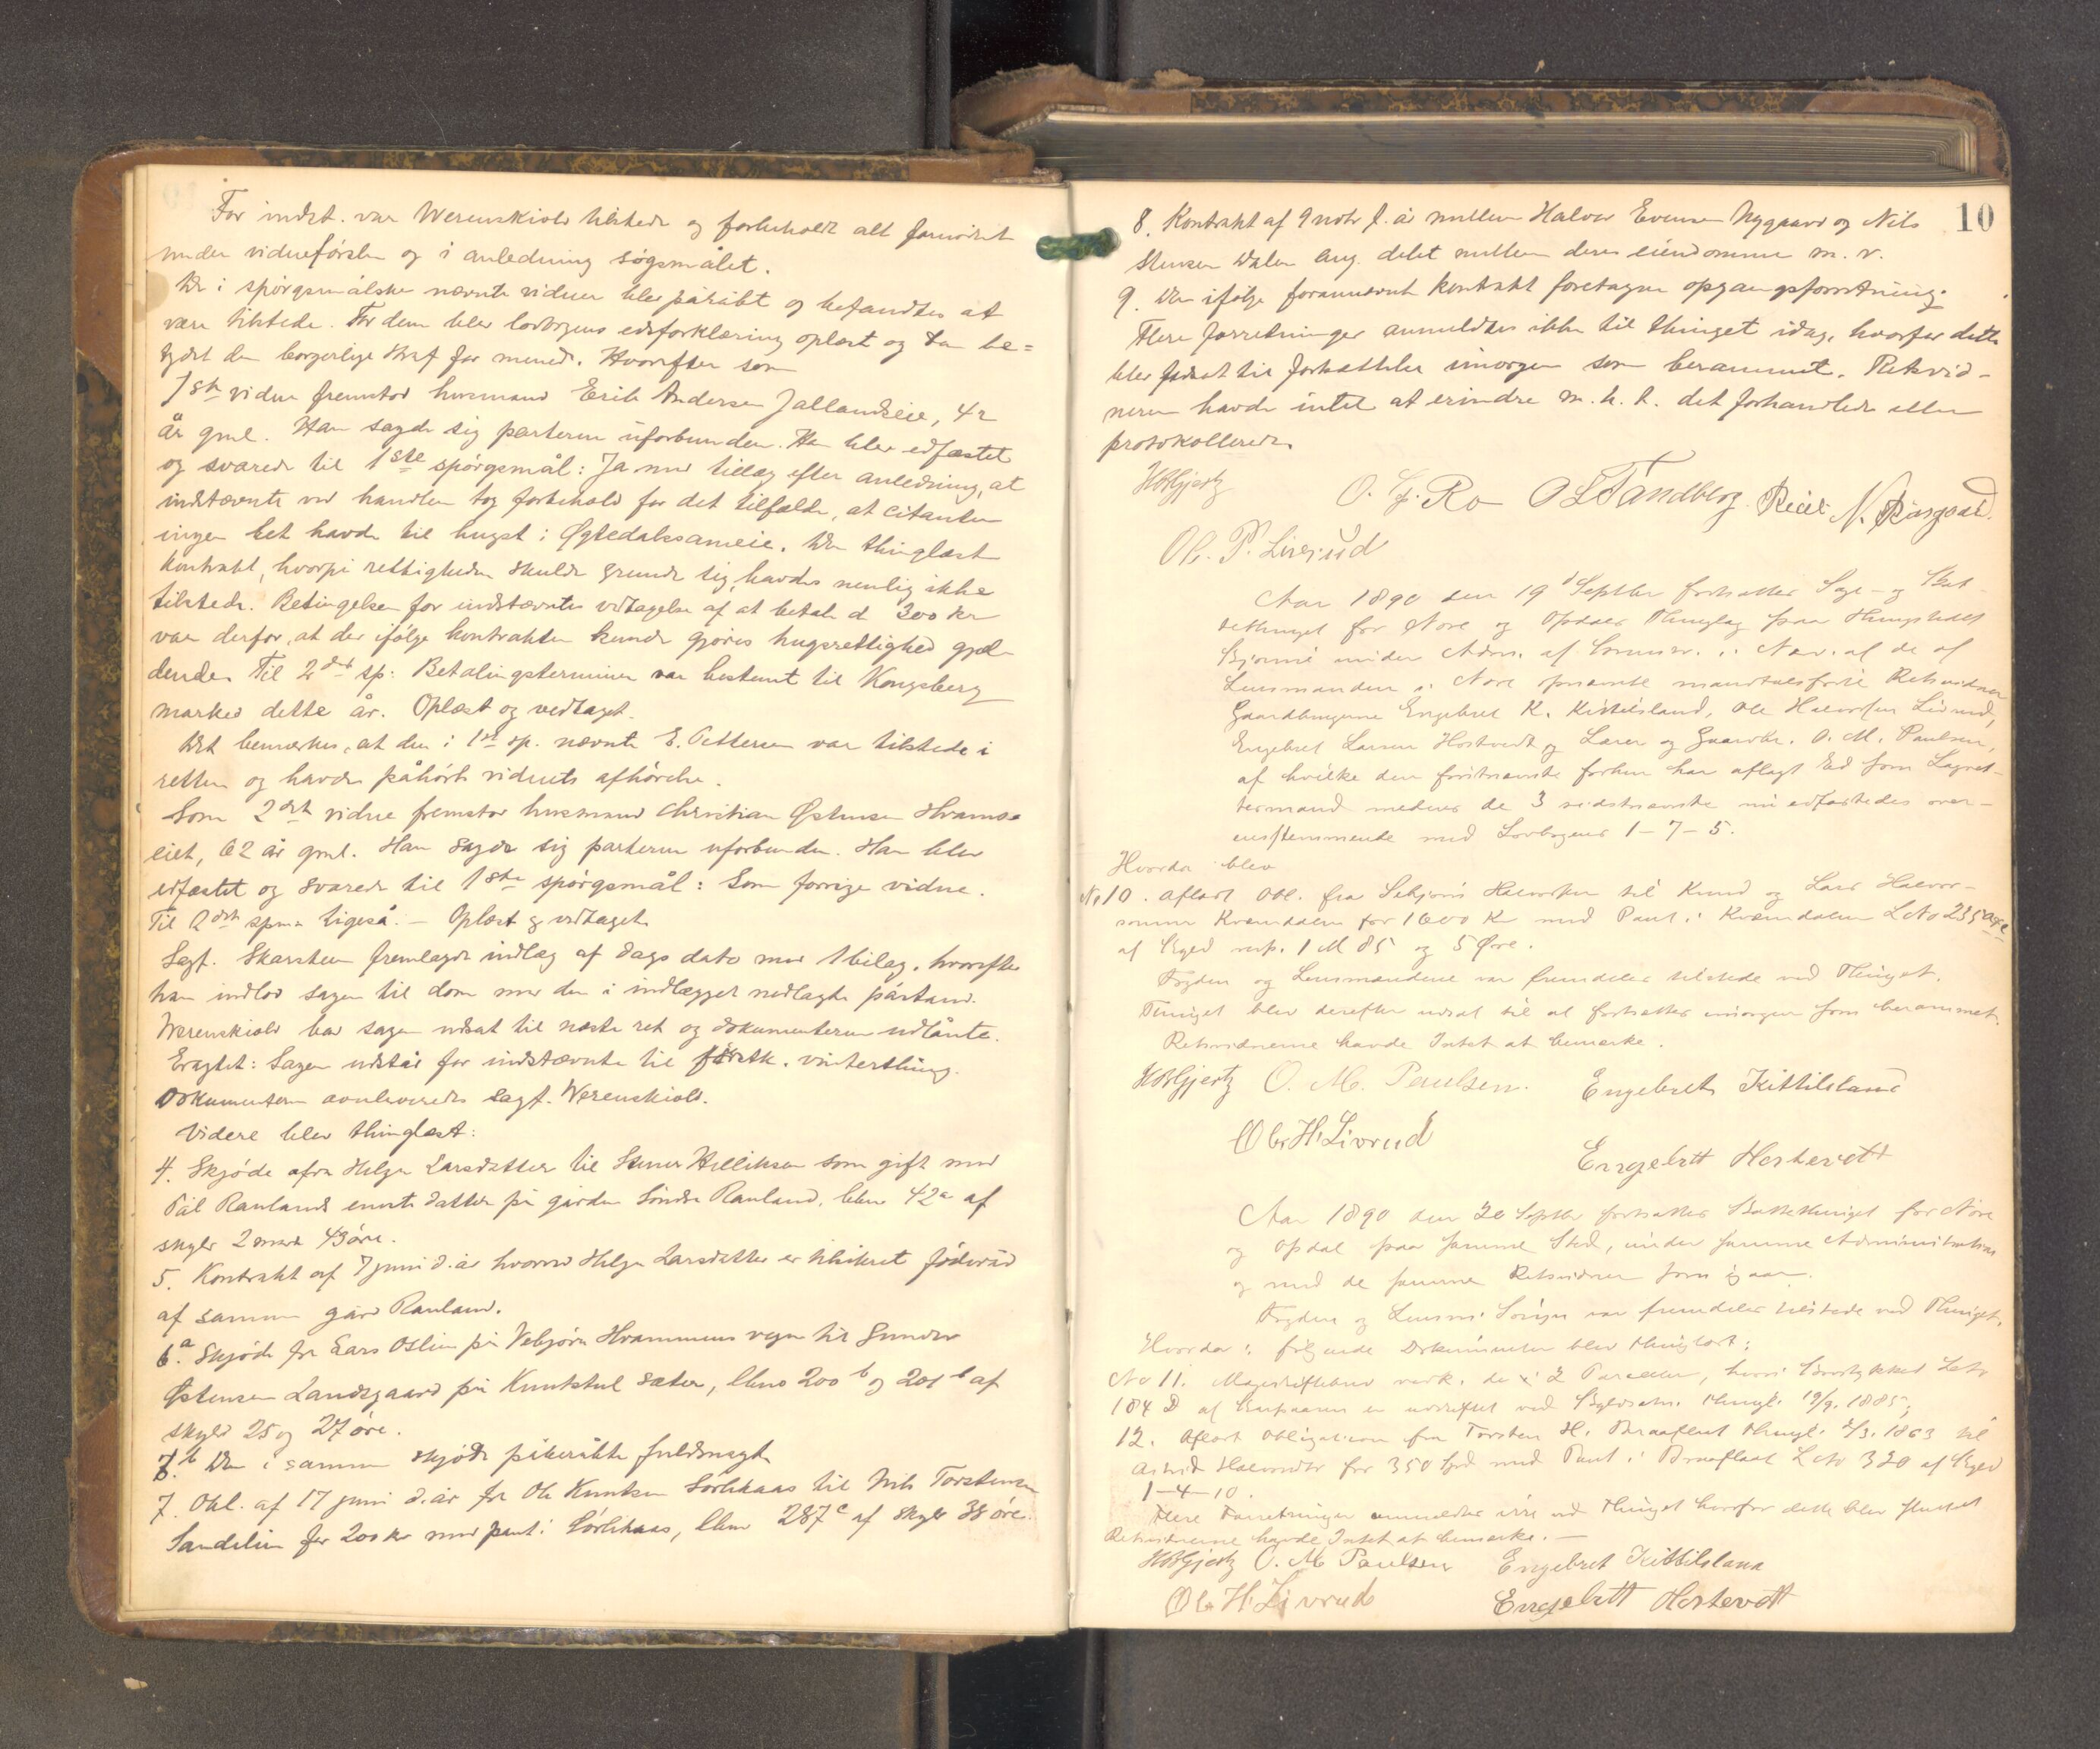 For indst. var Werenskiold tilstede og forbeholdt alt fornødent
under vidneførslen og i anledning søgsmålet.
De i spørgsmålene nævnte vidner blev påråbt og befandtes at
være tilstede. For dem blev lovbogens edsforklæring oplæst og den be=
tydet den borgerlige straf for mened. Hvorefter som
1ste vidne fremstod husmand Erik Andersen Jallandseie, 42
år gml. Han sagde sig parterne uforbunden. Han blev edfæstet
og svarede til 1ste spørgsmål: Ja med tillæg efter anledning, at
indstævnte ved handlen tog forbehold for det tilfælde, at citanten
ingen ret havde til hugst i Øgtedalssameie. Den thinglæste
kontrakt, hvorpå rettigheden skulde grunde sig, havdes nemlig ikke
tilstede. Betingelsen for indstævntes vedtagelse af at betale d 300 kr
var derfor, at der ifølge kontrakten kunde gjøres hugsrettighed gjæl-
dende. Til 2det sp: Betalingsterminen var bestemt til Kongsberg
marked dette år. Oplæst og vedtaget.
Det bemærkes, at den i 1st sp. nævnte E. Pettersen var tilstede i
retten og havde påhørt vidnets afhørelse.
Som 2det vidne fremstod husmand Christian Østensen Hvams-
eiet, 62 år gml. Han sagde sig parterne uforbunden. Han blev
edfæstet og svarede til 1ste spørgsmål: Som forrige vidne.
Til 2det spm. ligeså. — Oplæst & vedtaget.
Sagf. Skarsteen fremlagde indlæg af dags dato med 1 bilag, hvorefter
han indlod sagen til dom med den i indlægget nedlagte påstand.
Werenskiold bad sagen udsat til næste ret og dokumenterne udlånte.
Eragtet: Sagen udstår for indstævnte til førstk. vinterthing.
Dokumenterne avleveredes sagf. Werenskiold.
Videre blev thinglæst:
4. Skjøde fra Helge Larsdatter til Stener Helliksen som gift med
Pål Raulands eneste datter på gården Søndre Rauland, lbno 42a af
skyld 2 mark 43 øre.
5. Kontrakt af 7 juni d. år hvorved Helge Larsdatter er tilsikret føderåd
af samme gård Rauland.
6.a Skjøde fra Lars Oslien på Vebjørn Hrammens vegne til Gunder
Østensen Landsgaard på Knutstul sæter, lbno 200 b og 201 b af
skyld 25 og 27 øre.
b. Den i samme skjøde påberåbte fuldmagt.
7. Obl. af 17 juni d. år fra Ole Knutsen Sørlihaas til Nils Torstensen
Sandelien for 200 kr med pant i Sørlihaas, lbno 287c af skyld 38 øre.
10
8. Kontrakt af 9 novbr f. år mellem Halvor Evensen Nygaard og Nils
Stensen Dalen ang. delet mellem deres eiendomme m. v.
9. Den ifølge forannævnte kontrakt foretagne opgangsforretning.
Flere forretninger anmeldtes ikke til thinget idag, hvorfor dette
blev udsat til fortsættelse imorgen som berammet. Retsvid-
nerne havde intet at erindre m. h. t. det forhandlede eller
protokollerede.
HBGjertz O. G. Ro O L Tandberg Reiel N. Børsgaard.
Ole P. Liverud
Aar 1890 den 19 Septbr fortsattes Sage- og Skat-
tethinget for Nore og Opdals Thinglag paa Thingstedet
Bjørnni under Adm. af Sorenskr. i Næv. af de af
Lensmanden i Nore opnævnte mandtalsførte Retsvidner
Gaardbrugerne Engebret K. Kittilsland, Ole Halvorsen Livrud,
Engebret Larsen Hostvedt og Lærer og Gaardbr. O. M. Paulsen,
af hvilke den førstnævnte forhen har aflagt Ed som Lagret-
termand medens de 3 sidstnævnte nu edfæstedes over-
ensstemmende med Lovbogens 1-7-5.
Hvorda blev
No 10. aflæst Obl. fra Sebjørn Halvorsen til Knud og Lars Halvor-
sønner Kravndalen for 1600 Kr med Pant i Kravndalen LNo 235 a & e
af Skyld resp. 1 M 85 og 5 Øre.
Fogden og Lensmændene var fremdeles tilstede ved Thinget.
Thinget blev derefter udsat til at fortsættes imorgen som berammet.
Retsvidnerne havde Intet at bemærke.
HBGjertz O. M. Paulsen. Engebret Kittilsland
Ole H. Livrud
Engebrett Hostevett
Aar 1890 den 20 Septbr fortsattes Skattethinget for Nore
og Opdal paa samme Sted, under samme Administration
og med de samme Retsvidner som igaar.
Fogden og Lensm: Sorgen var fremdeles tilstede ved Thinget.
Hvorda følgende Dokumenter blev thinglæst:
No 11. Mageskiftebrev vedk. de 2 Parceller, hvori Brugstykket LNo
184 D af er udskiftet ved Skyldsætn. thingl. 19/9. 1885,
12. Aflæst Obligation fra Torsten H. Braaflaat thingl. 2/3. 1863 til
Astrid Halvorsdtr for 350 Spd med Pant i Braaflaat LNo 320 af Skyld
1-4-10.
Flere Forretninger anmeldtes ikke ved Thinget hvorfor dette blev sluttet
Retsvidnerne havde Intet at bemærke. —
HBGjertz O. M Paulsen Engebret Kittilsland
Ole H. Livrud Engebrett Hostevett